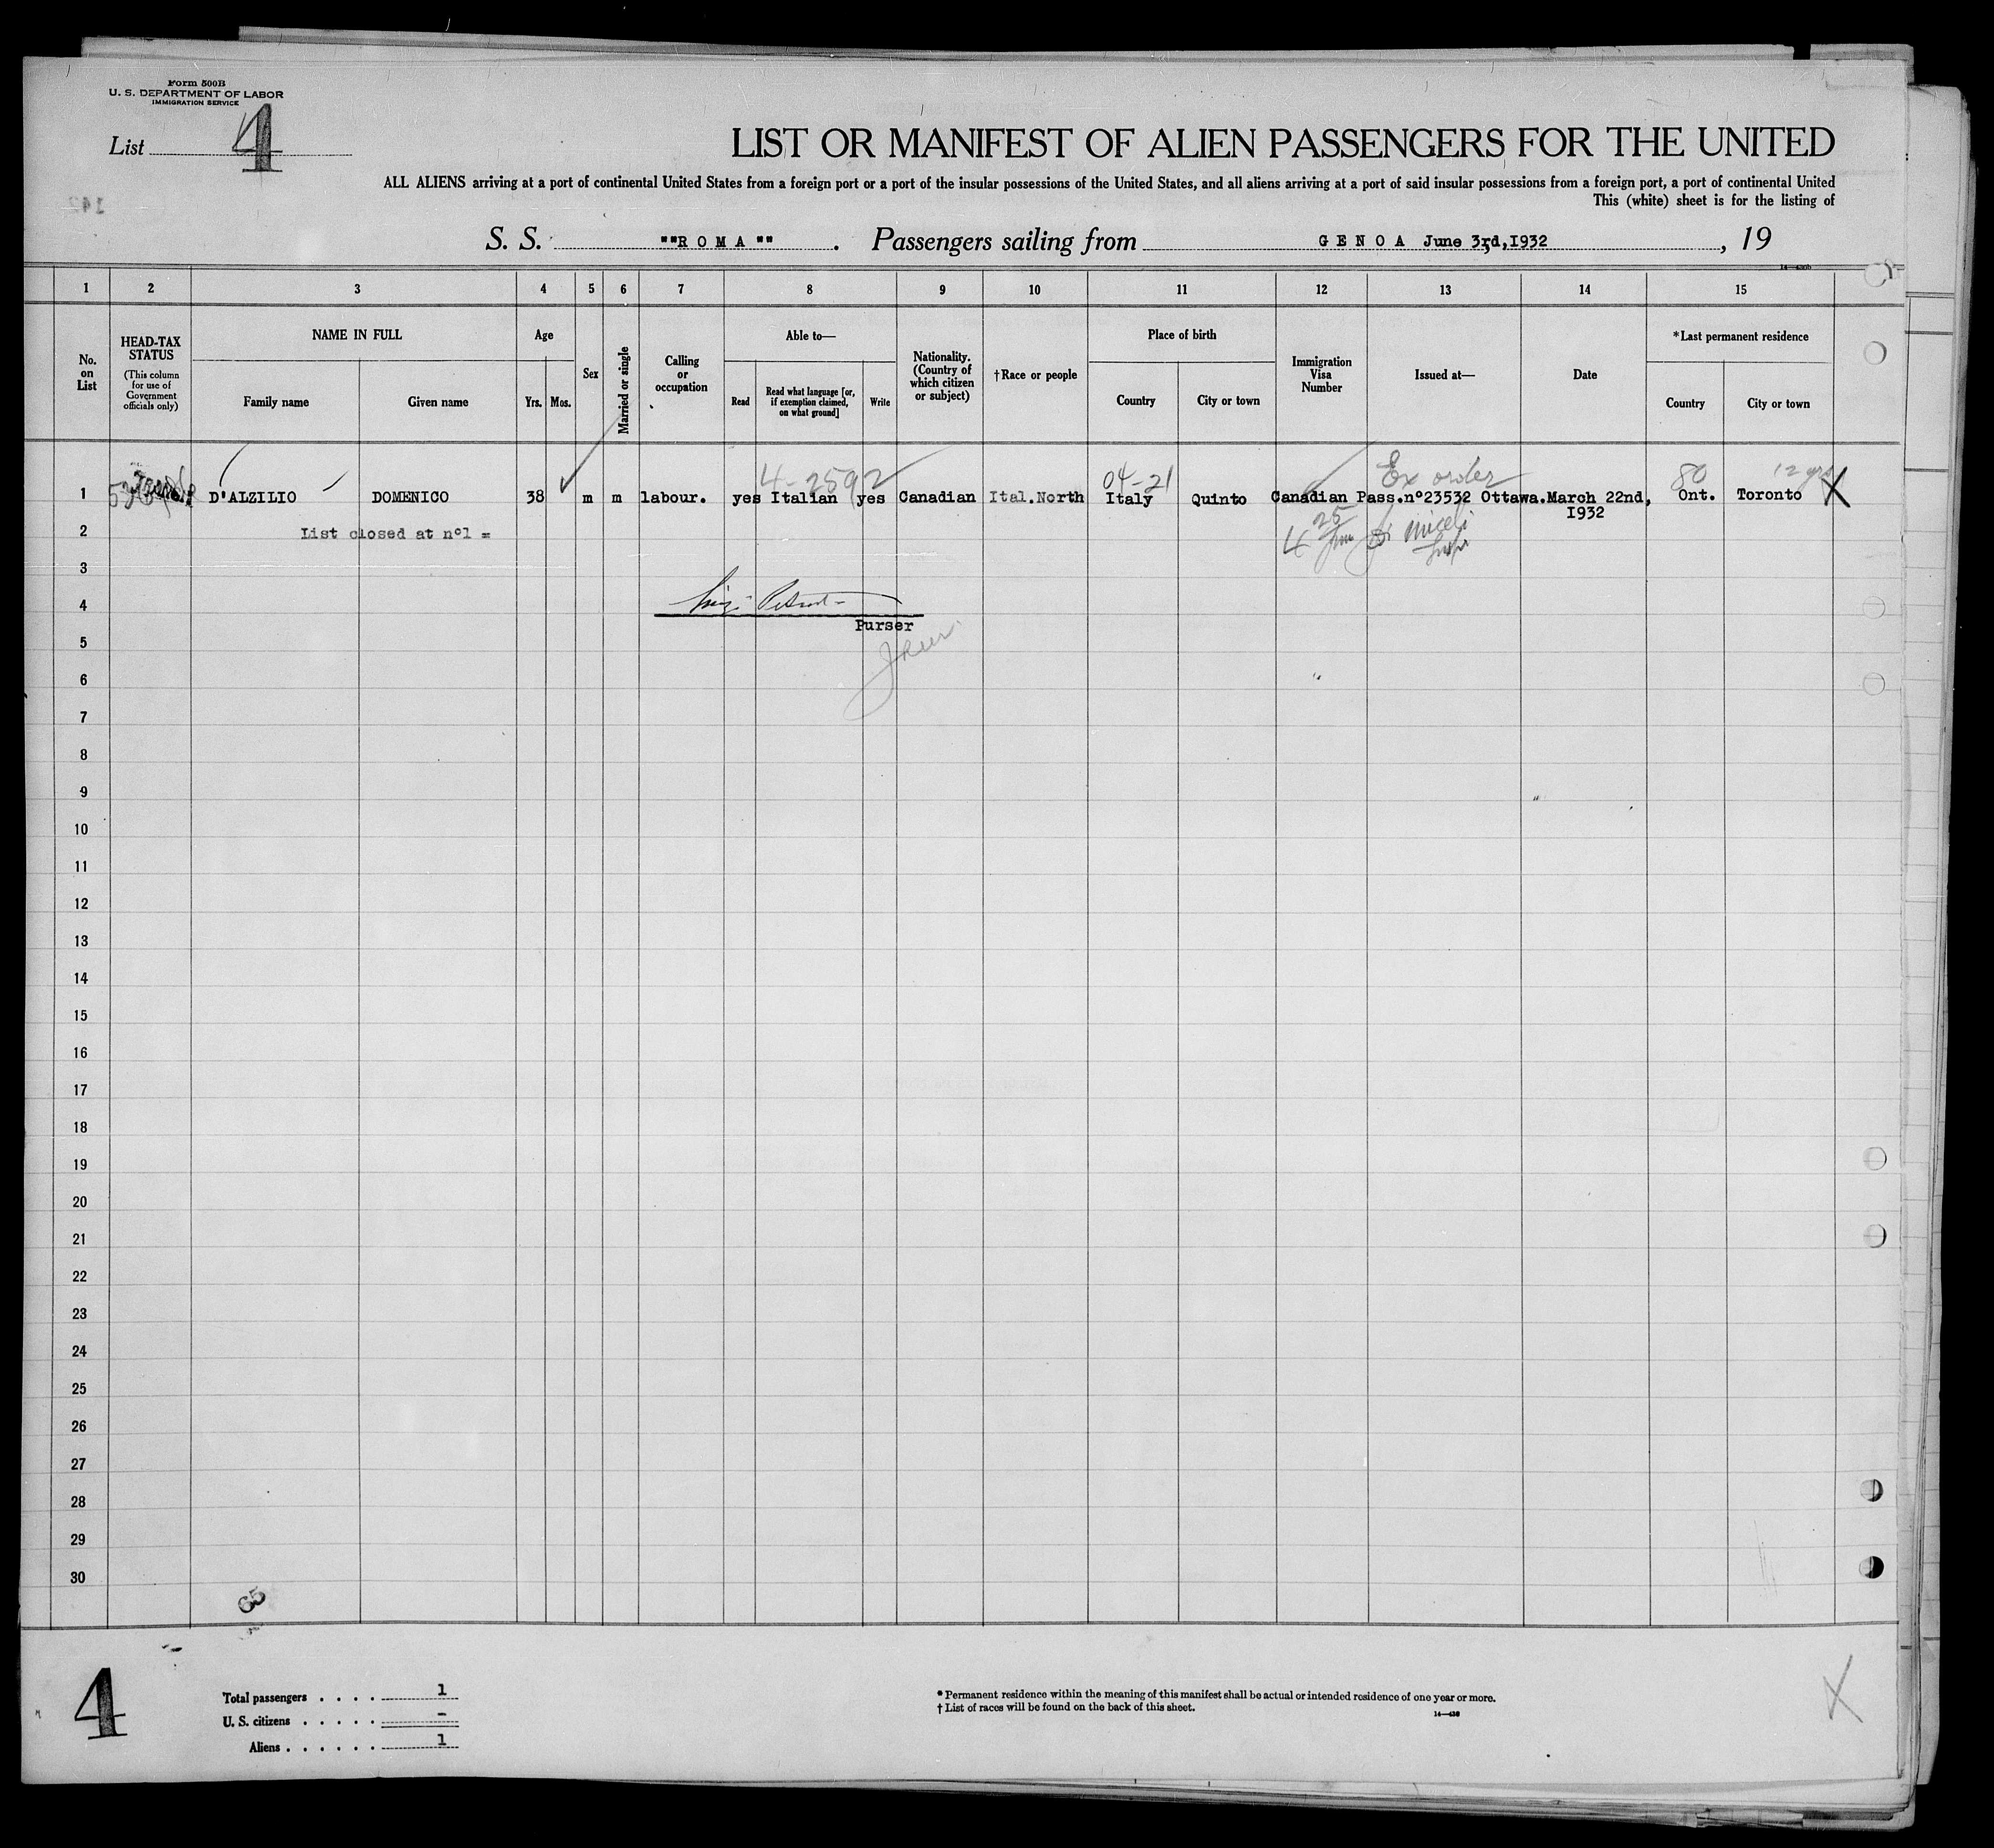 Form 500B
U. S. DEPARTMENT OF LABOR
IMMIGRATION SERVICE
List 4
LIST OR MANIFEST OF ALIEN PASSENGERS FOR THE UNITED
ALL ALIENS arriving at a port of continental United States from a foreign port or a port of the insular possessions of the United States, and all aliens arriving at a port of said insular possessions from a foreign port, a port of continental United
This (white) sheet is for the listing of
S. S. ""R O M A"" . Passengers sailing from G E N O A June 3rd,I932 , 19
1 2 3 4 5 6 7 8 9 10 11 12 13 14 15
No. on List
HEAD-TAX STATUS
(This column for use of Government officials only)
NAME IN FULL
Family name
Given name
Age
Yrs.
Mos.
Sex
Married or single
Calling or occupation
Able to—
Read
Read what language [or, if exemption claimed, on what ground]
Write
Nationality. (Country of which citizen or subject)
†Race or people
Place of birth
Country
City or town
Immigration Visa Number
Issued at—
Date
*Last permanent residence
Country
City or town
4-2592 04-21 Ex order 80 12 yrs
1 D'ALZILIO DOMENICO 38 m m labour. yes Italian yes Canadian Ital.North Italy Quinto Canadian Pass.nº23532 Ottawa.March 22nd, Ont. Toronto X
I932
2 List closed at nºl =
3
4
Purser
5
6
7
8
9
10
11
12
13
14
15
16
17
18
19
20
21
22
23
24
25
26
27
28
29
30
65
4
Total passengers . . . . 1
U. S. citizens . . . . . -
Aliens . . . . . . 1
* Permanent residence within the meaning of this manifest shall be actual or intended residence of one year or more.
† List of races will be found on the back of this sheet.
X